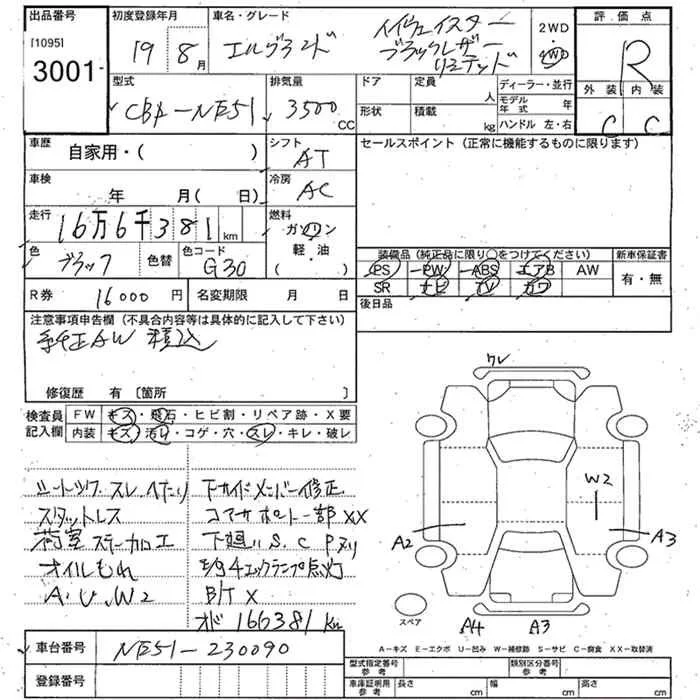 出品番号
[1095]
3001
初度登録年月
19 8月
車名・グレード
エルグランド
ハイウェイスター
ブラックレザー
リミテッド
2WD
・
4WD
評価点
R
外装 内装
C C
型式
CBA-NE51
排気量
3500
CC
ドア
形状
定員
人
積載
kg
ディーラー・並行
モデル年式 年
ハンドル 左・右
車歴
自家用・( )
シフト
AT
セールスポイント（正常に機能するものに限ります）
車検
年 月(日)
冷房
AC
走行
16万6千381km
燃料
ガソリン
軽・油
( )
色
ブラック
色替
色コード
G30
装備品（純正品に限り○をつけてください）
新車保証書
PS PW ABS エアB AW
SR ナビ TV カワ
有・無
R券 16000円
名変期限 月 日
後日品
注意事項申告欄（不具合内容等は具体的に記入して下さい）
純正AW 積込
修復歴 有〔箇所 〕
検査員
記入欄
FW キズ・飛石・ヒビ割・リペア跡・X要
内装 キズ・汚れ・コゲ・穴・スレ・キレ・破レ
シートツワ スレ ヘたり
スタットレス
荷室 ステー加工
オイルもれ
A.U.W2
下サイドメンバー修正
コアサポート一部XX
下廻い S.C Pヌリ
エックランプ点灯
B/T X
オド 166381 km
ワレ
W2
A2
A3
A4
A3
スペア
A－キズ E－エクボ U－凹み W－補修跡 S－サビ C－腐食 XX－取替済
車台番号 NE51-230090
登録番号
型式指定番号
参考
類別区分番号
参考
車庫証明用
参考
長さ cm
幅 cm
高さ cm